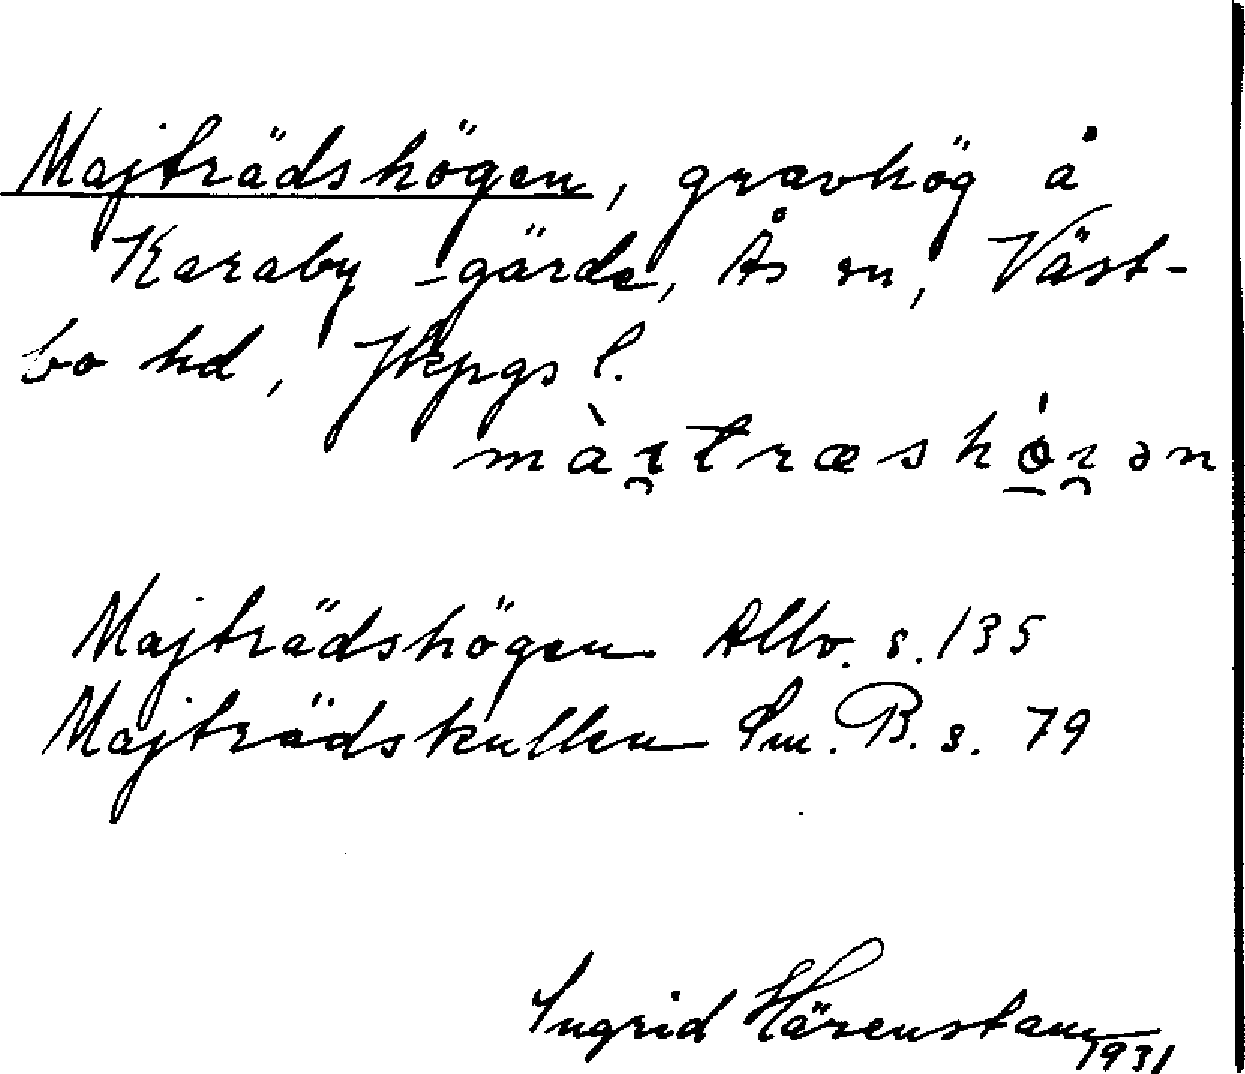 Majträdshögen, gravhög å
Karaby -gärde, Ås sn, Väst-
bo hd, Jkpgs l.
mài̯træshó̱i̯ən
Majträdshögen Allv. s. 135
Majträdskullen Sm. B. s. 79
Ingrid Härenstam
1931